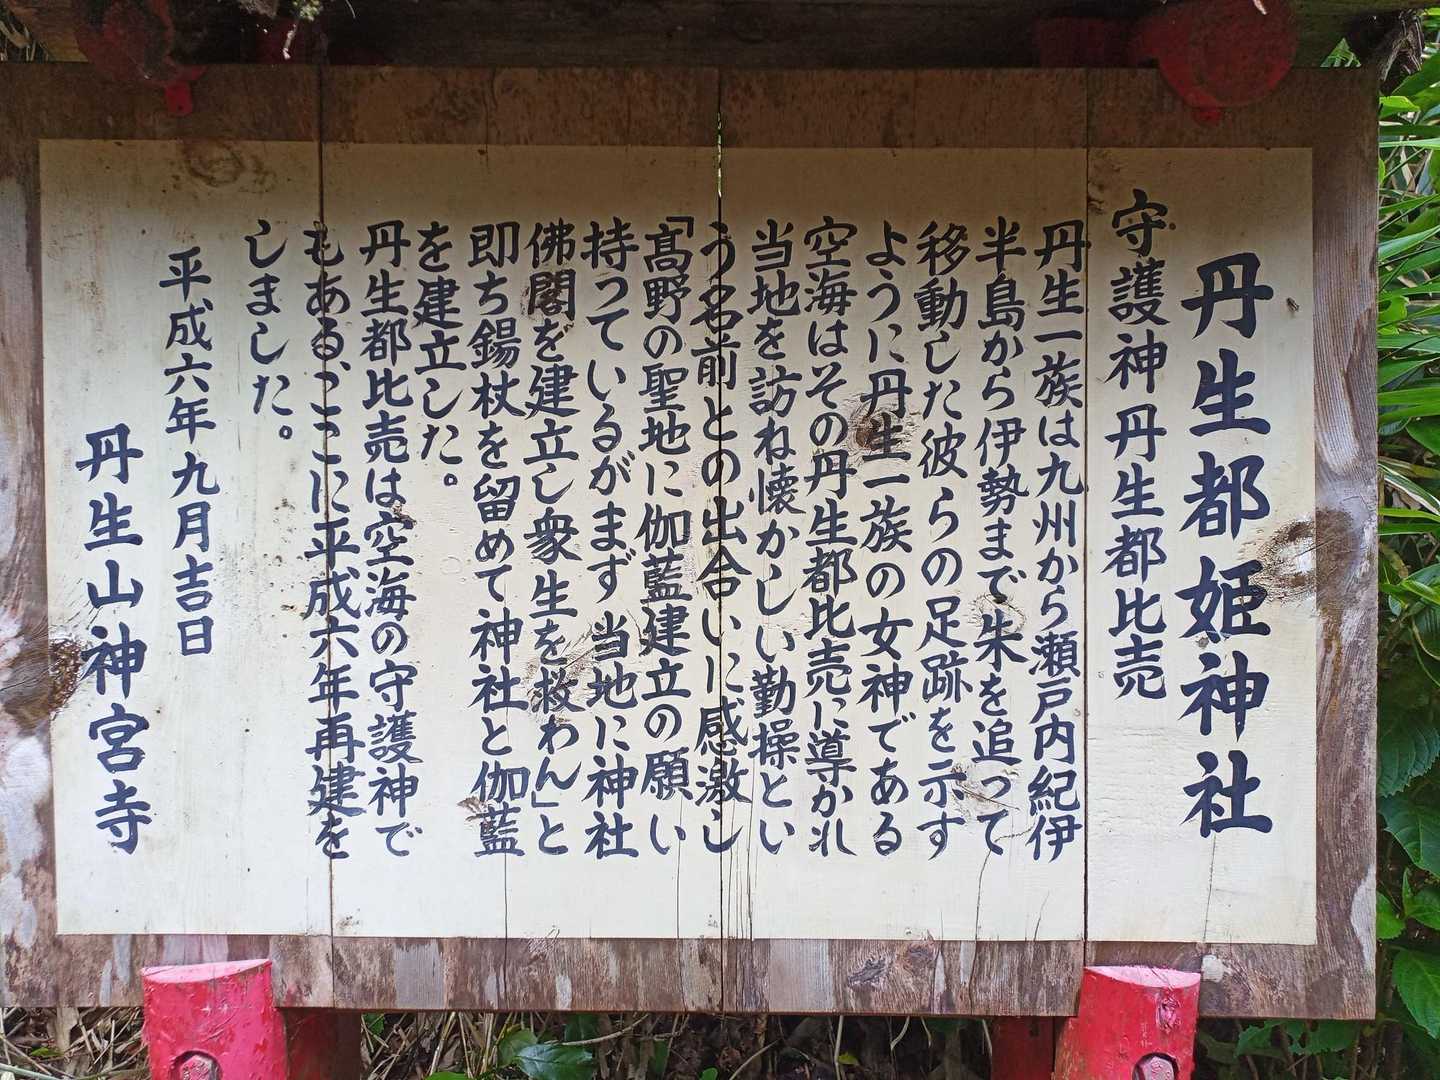 丹生都姫神社
守護神丹生都比売
丹生一族は九州から瀬戸内紀伊
半島から伊勢まで朱を追って
移動した彼らの足跡を示す
ように丹生一族の女神である
空海はその丹生都比売に導かれ
当地を訪ね懐かしい勤操とい
う名前との出合いに感激し
「髙野の聖地に伽藍建立の願い
持っているがまず当地に神社
佛閣を建立し衆生を救わん」と
即ち錫杖を留めて神社と伽藍
を建立した。
丹生都比売は空海の守護神で
もある、ここに平成六年再建を
しました。
平成六年九月吉日
丹生山神宮寺